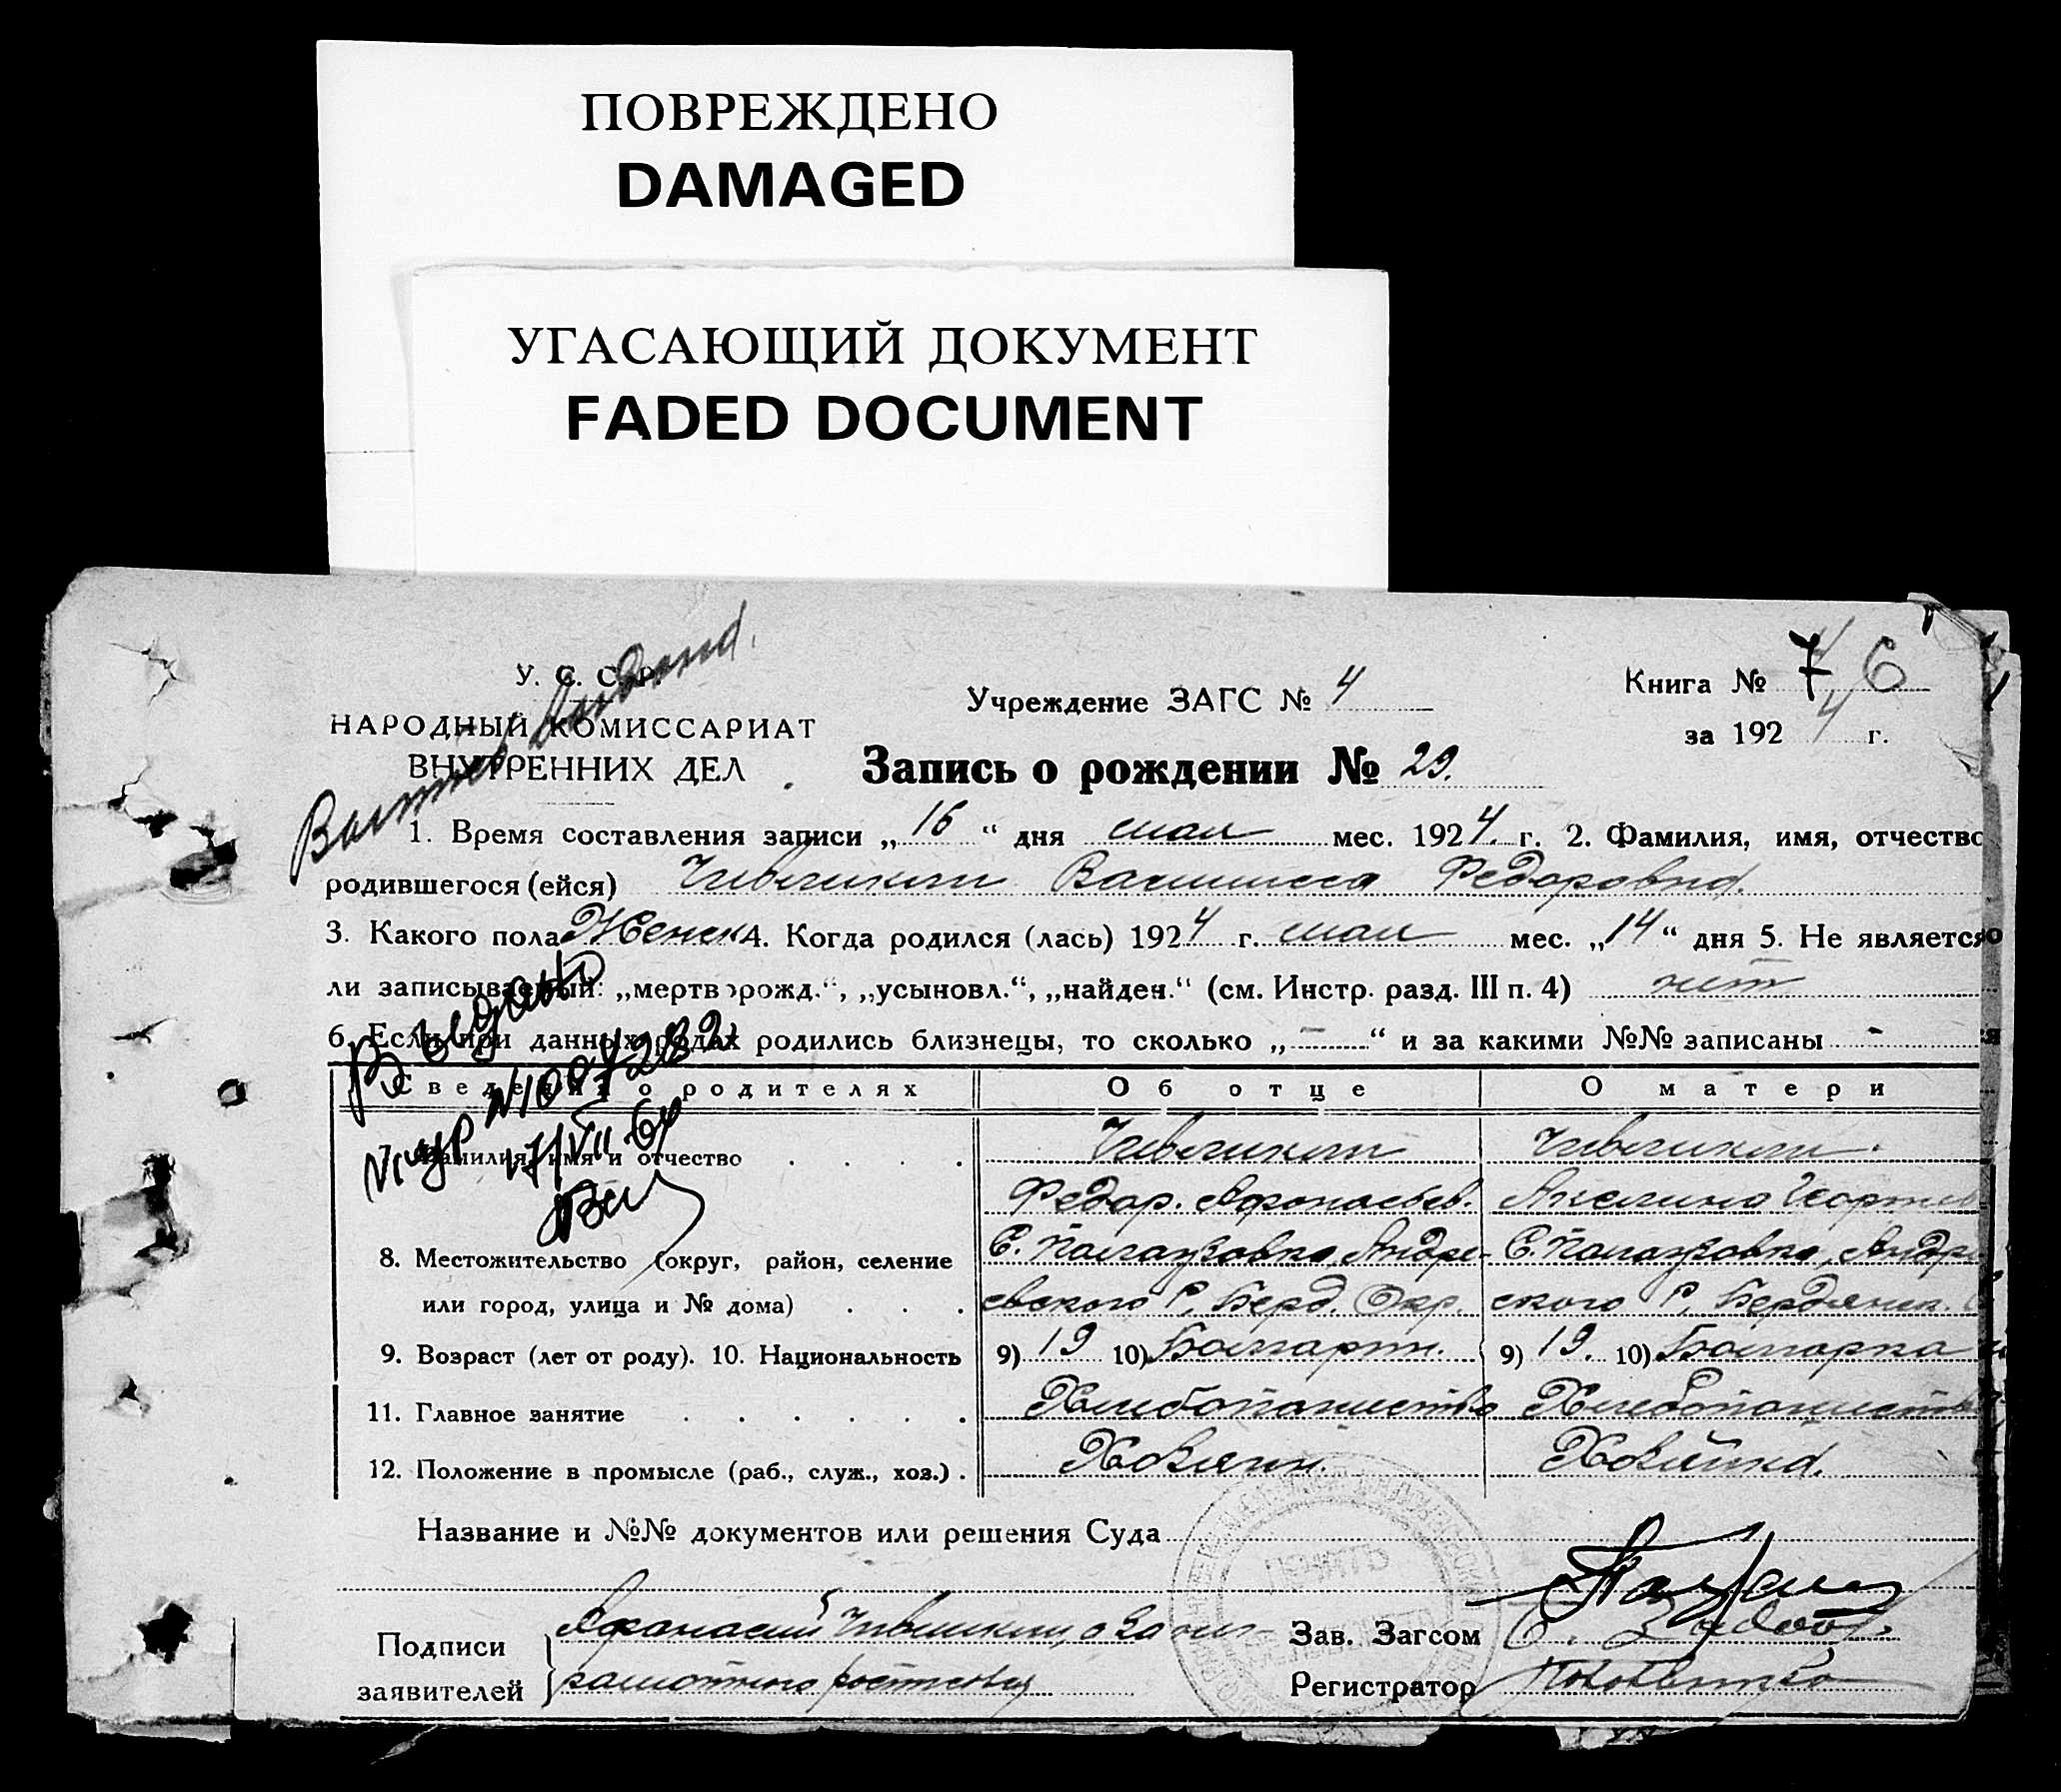 ПОВРЕЖДЕНО
DAMAGED
УГАСАЮЩИЙ ДОКУМЕНТ
FADED DOCUMENT
У. С. С. Р.
НАРОДНЫЙ КОМИССАРИАТ
ВНУТРЕННИХ ДЕЛ
Учреждение ЗАГС № 4
Книга № 7
за 1924 г.
Запись о рождении № 29.
1. Время составления записи „16“ дня мая мес. 1924 г. 2. Фамилия, имя, отчество
родившегося (ейся) Василиса Федоровна.
3. Какого пола Женск 4. Когда родился (лась) 1924 г. мая мес. „14“ дня 5. Не является
ли записываемый: „мертворожд.“, „усыновл.“, „найден.“ (см. Инстр. разд. III п. 4) нет
6. Если при данных родах родились близнецы, то сколько „-“ и за какими №№ записаны -
Сведения о родителях Об отце О матери
Выдано
17/VII-64
7. Фамилия, имя и отчество
Федор. Афанасьев. Ангелина Георгиев
8. Местожительство (округ, район, селение С. Палаузовка, Андре- С. Палаузовка, Андре
или город, улица и № дома) евского Р. Берд. Окр. ского Р. Бердянск.
9. Возраст (лет от роду). 10. Национальность 9) 19 10) Болгарин. 9) 19. 10) Болгарка
11. Главное занятие Хлебопашество Хлебопашество
12. Положение в промысле (раб., служ., хоз.). Хозяин. Хозяйка.
Название и №№ документов или решения Суда
Подписи Афанасий
заявителей
Зав. Загсом
Регистратор